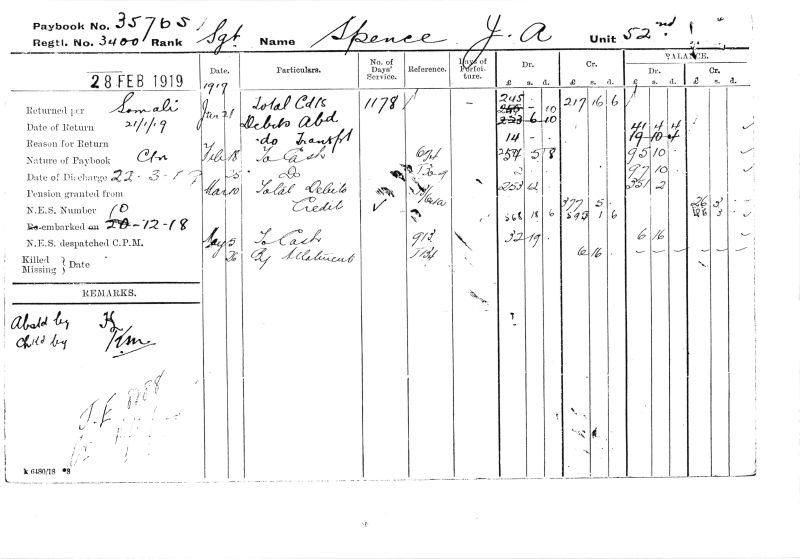 Paybook No. 35765
Regtl. No. 3400 Rank Sgt Name Spence J. A Unit 52nd
28 FEB 1919
Date. Particulars. No. of Days' Service. Reference. Days of Forfeiture. Dr. Cr. BALANCE.
£ s. d. £ s. d. Dr. Cr.
£ s. d. £ s. d.
1919
Returned per Somali
Date of Return 21/1/19
Reason for Return
Nature of Paybook
Date of Discharge 22-3-19
Pension granted from
N.E.S. Number 10
Re-embarked on 20-12-18
N.E.S. despatched C.P.M.
Killed
Missing } Date
REMARKS.
Jan 21 Total Cdts 1178 - 245 217 16 6
Debits Abd 223 6 10 41 4 4
do Transft 14 - 19 10 4
Feb 18 To Cash 674 254 5 8 95 10
25 Do 2 97 10
Mar 10 Total Debits 253 12 351 2
Credit ✓ 377 5 26 3
568 18 6 595 1 6 26 3
May 5 To Cash 913 32 19 6 16
26 By Allotment 6 16 - - - - - -
Abstd by
Chkd by
J.E 8188
k 6480/18